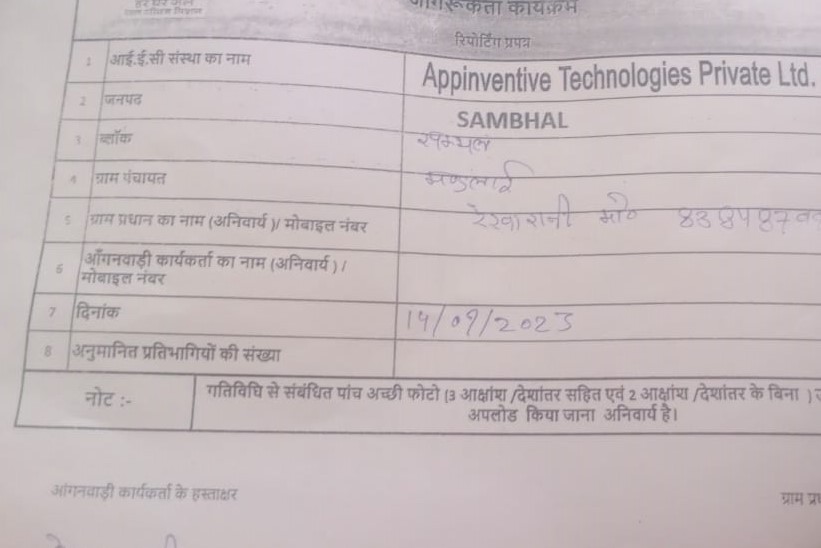 हर घर जल
जागरूकता कार्यक्रम
रिपोर्टिंग प्रपत्र
1 आई.ई.सी संस्था का नाम Appinventive Technologies Private Ltd.
2 जनपद SAMBHAL
3 ब्लॉक सम्भल
4 ग्राम पंचायत
5 ग्राम प्रधान का नाम (अनिवार्य )/ मोबाइल नंबर रेखा रानी मो०
6 आँगनवाड़ी कार्यकर्ता का नाम (अनिवार्य ) /
मोबाइल नंबर
7 दिनांक 14/09/2023
8 अनुमानित प्रतिभागियों की संख्या
नोट :- गतिविधि से संबंधित पांच अच्छी फोटो (3 आक्षांश /देशांतर सहित एवं 2 आक्षांश /देशांतर के बिना )
अपलोड किया जाना अनिवार्य है।
आंगनवाड़ी कार्यकर्ता के हस्ताक्षर ग्राम